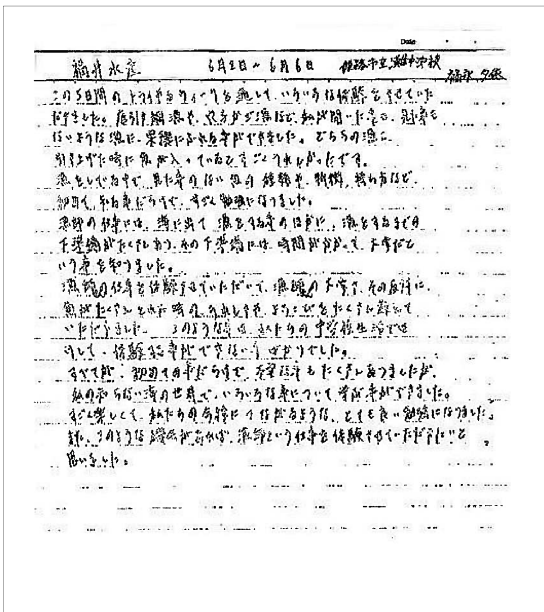 Date
福井水産 6月2日～6月6日 姫路市立 中学校
この5日間のトライやるウィークを通して、いろいろな経験をさせていた
だきました。底引き網漁や、 漁など、私が聞いた事も、見た事も
ないような漁に、実際にふれる事ができました。どちらの漁も
引き上げた時に魚が入っているとすごくうれしかったです。
漁をしている中で、見た事のない魚の種類や、特徴、 など、
初めて知る事だらけで、すごく勉強になりました。
漁師の仕事には、海に出て、漁をする事のほかに、漁をするまでの
下準備がたくさんあり、その下準備には、時間がかかって、大変だと
いう事を知りました。
漁師の仕事を体験させていただいて、漁師の大変さ、その反対に
魚がたくさんとれた時のうれしさや、よろこびをたくさん教えて
いただきました。このような事は、私たちの中学校生活では
けして、体験する事ができないことばかりでした。
すべてが、初めての事だらけで、 もたくさんありましたが、
私の知らない海の世界で、いろいろな事について学ぶ事ができました。
すごく楽しくて、私たちの将来に なるような、とても良い勉強になりました。
また、このような機会があれば、漁師という仕事を体験させていただきたいと
思いました。